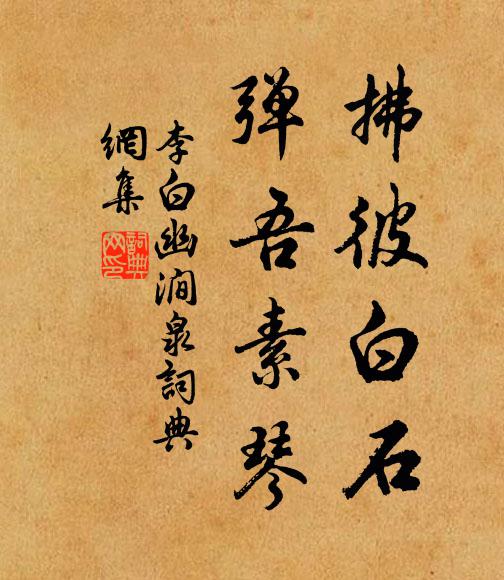 拂彼白石
弹吾素琴
李白幽涧泉词典
網集
詞典
网印